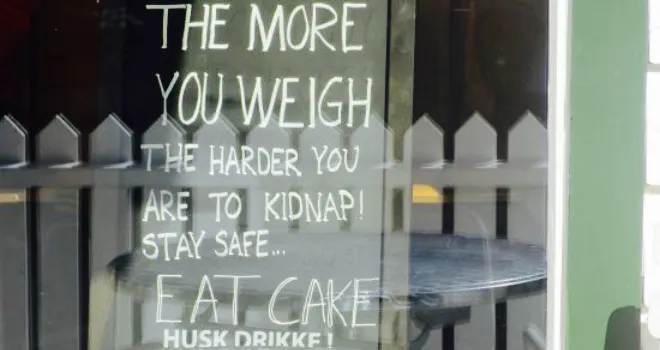 THE MORE
YOU WEIGH
THE HARDER YOU
ARE TO KIDNAP!
STAY SAFE...
EAT CAKE
HUSK DRIKKE!